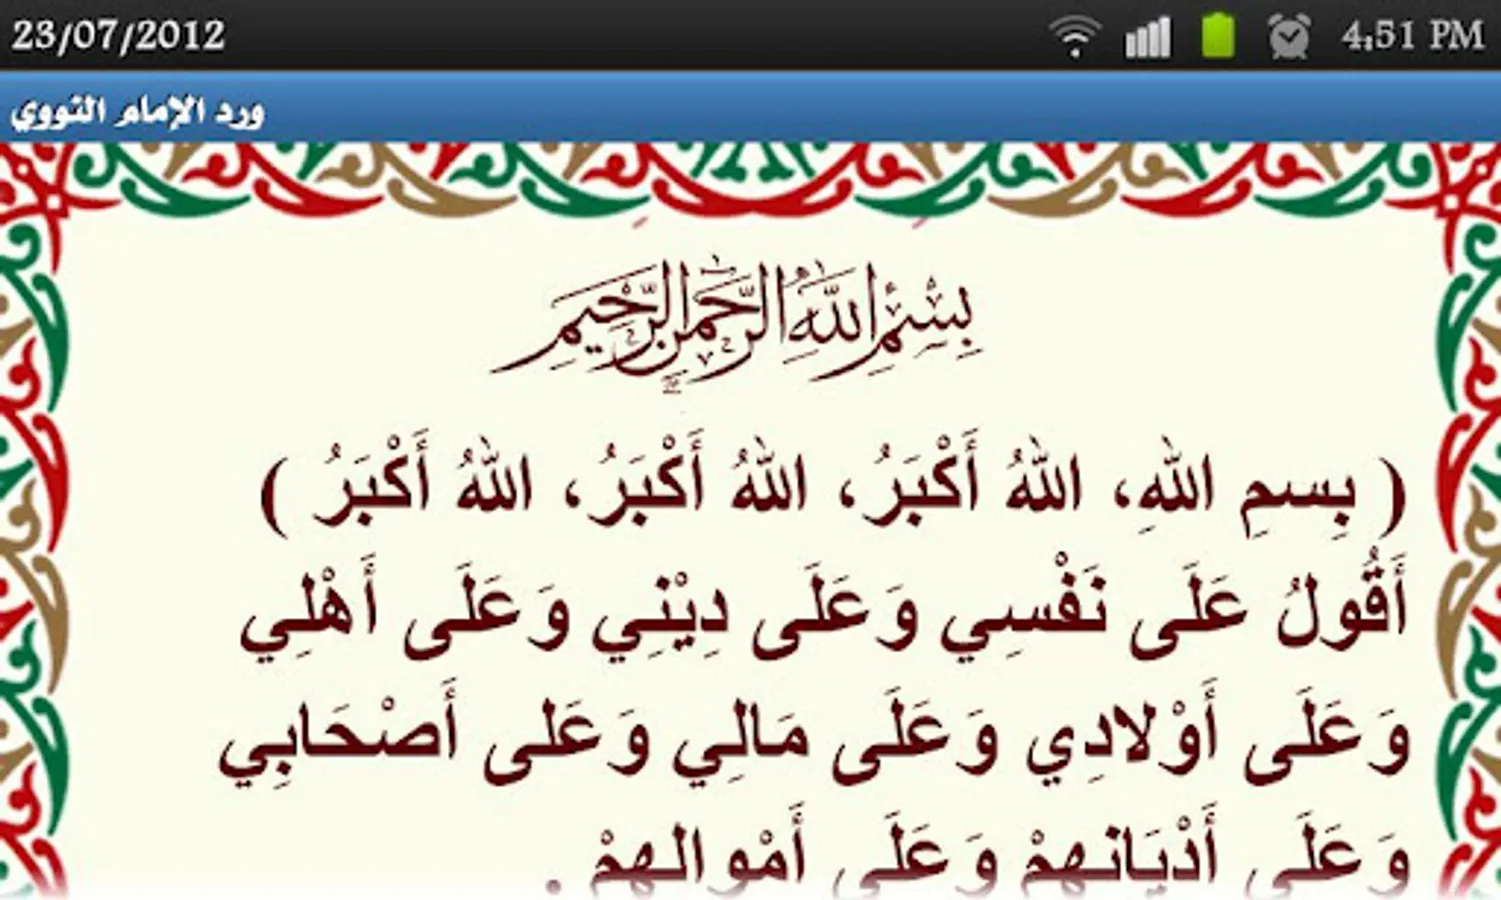 23/07/2012 4:51 PM
ورد الإمام النووي
بِسْمِ اللَّهِ الرَّحْمَٰنِ الرَّحِيمِ
( بِسمِ اللهِ، اللهُ أَكْبَرُ، اللهُ أَكْبَرُ، اللهُ أَكْبَرُ )
أَقُولُ عَلَى نَفْسِي وَعَلَى دِيْنِي وَعَلَى أَهْلِي
وَعَلَى أَوْلادِي وَعَلَى مَالِي وَعَلى أَصْحَابِي
وَعَلَى أَدْيَانِهِمْ وَعَلَى أَمْوالِهِمْ .